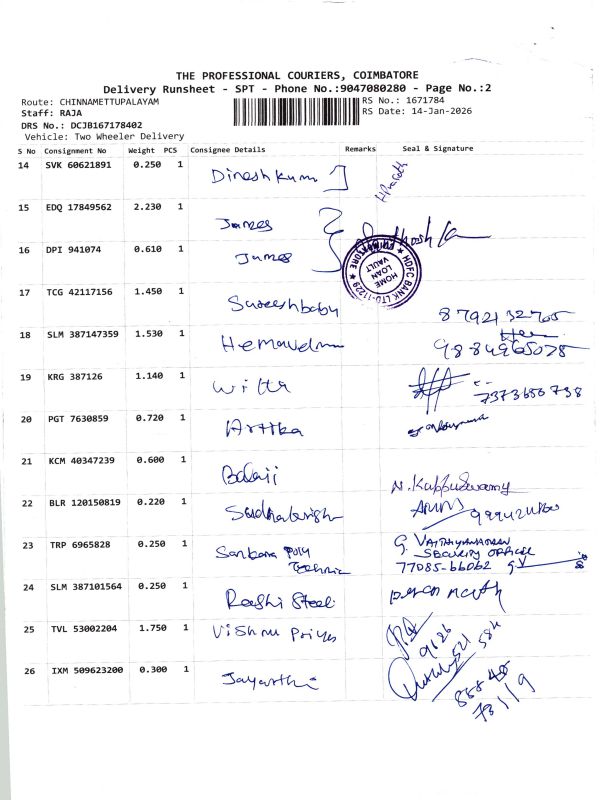 THE PROFESSIONAL COURIERS, COIMBATORE
Delivery Runsheet - SPT - Phone No.:9047080280 - Page No.:2
Route: CHINNAMETTUPALAYAM
RS No.: 1671784
Staff: RAJA
RS Date: 14-Jan-2026
DRS No.: DCJB167178402
Vehicle: Two Wheeler Delivery
S No Consignment No Weight PCS Consignee Details Remarks Seal & Signature
14 SVK 60621891 0.250 1 Dineshkum
15 EDQ 17849562 2.230 1 James
16 DPI 941074 0.610 1 James
HDFC BANK LTD-11229 ★ COIMBATORE ★
HOME LOAN VAULT
17 TCG 42117156 1.450 1 Sureeshbabu
8792132705
18 SLM 387147359 1.530 1
9884965078
19 KRG 387126 1.140 1
7373650738
20 PGT 7630859 0.720 1
21 KCM 40347239 0.600 1 Balaji N. Kuppuswamy
22 BLR 120150819 0.220 1
23 TRP 6965828 0.250 1 Sankara Poly Technic
G. VAITHIYANATHAN
SECURITY OFFICER
77085-66062
24 SLM 387101564 0.250 1 Rashi Steel
25 TVL 53002204 1.750 1 Vishnu Priya
9626
521 584
26 IXM 509623200 0.300 1 Jayanthi